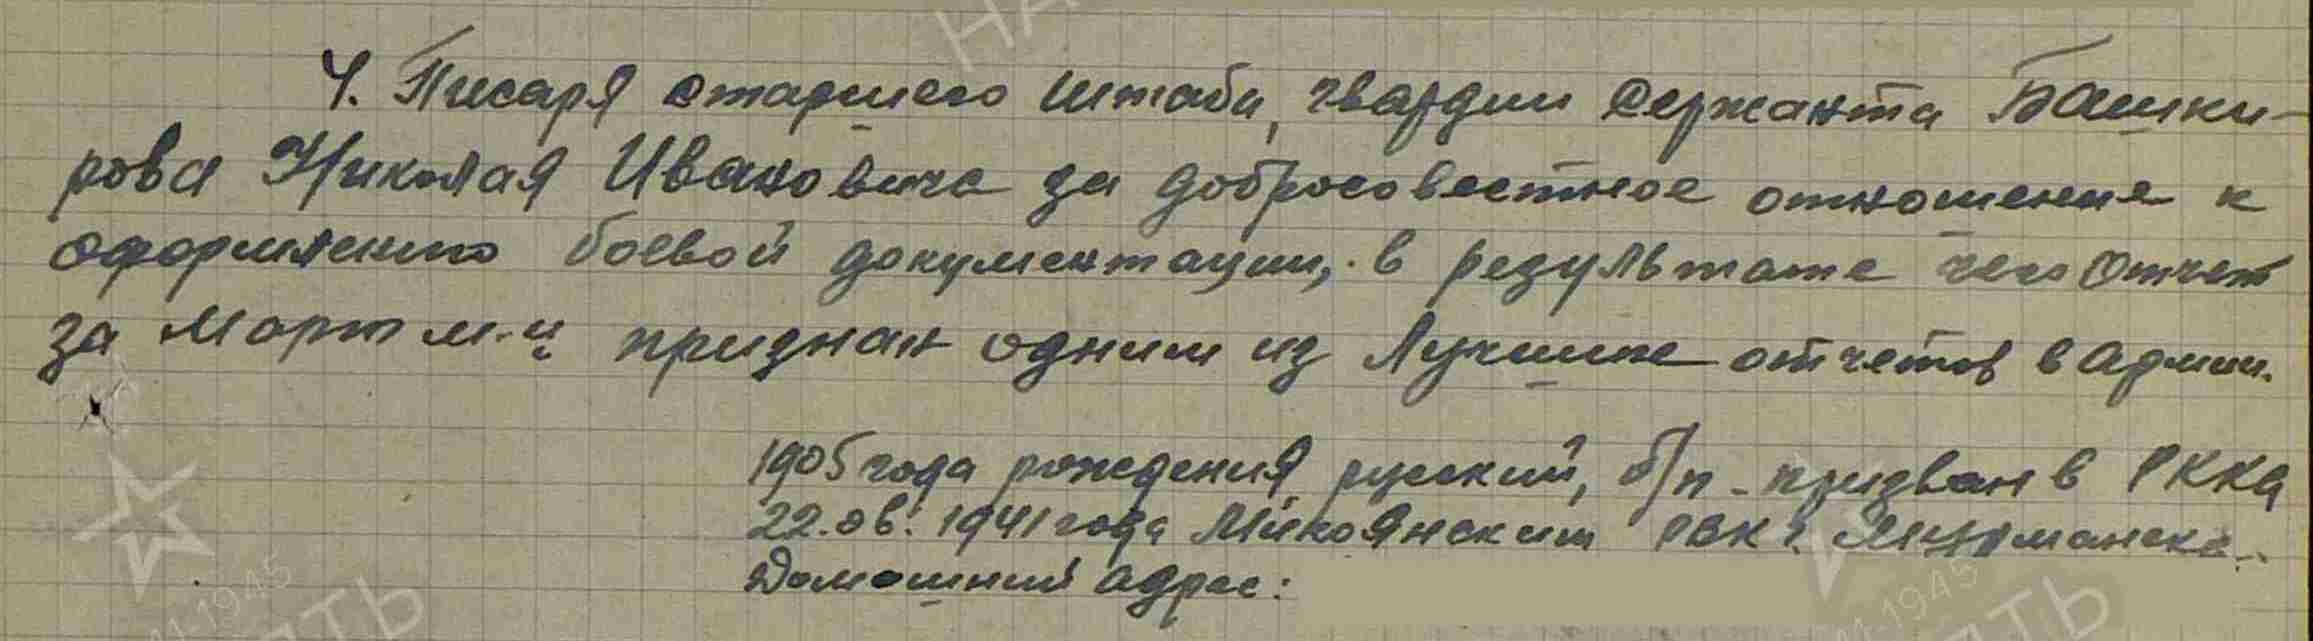 4. Писаря старшего штаба, гвардии сержанта Башки-
рова Николая Ивановича за добросовестное отношение к
оформлению боевой документации, в результате чего отчет
за Март м-ц признан одним из лучших отчетов в армии.
1905 года рождения, русский, б/п - призван в РККА
22.06.1941 года Микоянским РВК г. Мурманска.
Домашний адрес:
НА
1941-1945
ПАМЯТЬ
1941-1945
ПАМЯТЬ